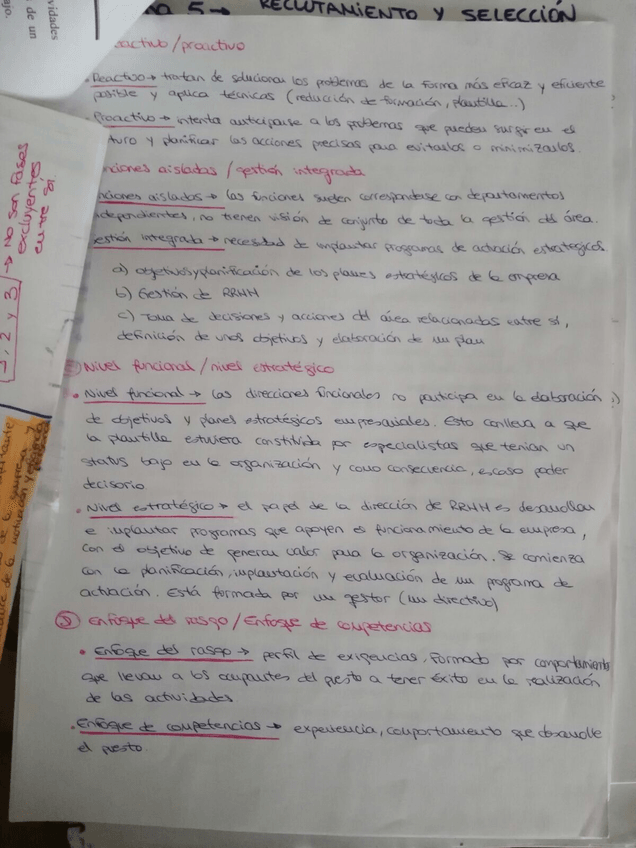 vidades
de un
ajo.
A 5 → RECLUTAMIENTO Y SELECCIÓN
reactivo / proactivo
• Reactivo → tratan de solucionar los problemas de la forma más eficaz y eficiente
posible y aplica técnicas (reducción de formación, plantilla..)
Proactivo → intenta anticiparse a los problemas que puedan surgir en el
turo y planificar las acciones precisas para evitarlos o minimizarlos.
nciones aisladas / gestión integrada
nciones aisladas → las funciones suelen corresponderse con departamentos
independientes, no tienen visión de conjunto de toda la gestión del área.
estión integrada → necesidad de implantar programas de actuación estratégicos
a) objetivos y planificación de los planes estratégicos de la empresa
b) Gestión de RRHH
c) Toma de decisiones y acciones del área relacionadas entre sí,
definición de unos objetivos y elaboración de un plan
1, 2 y 3 → No son fases
excluyentes
entre sí
Nivel funcional / nivel estratégico
• Nivel funcional → las direcciones funcionales no participa en la elaboración
de objetivos y planes estratégicos empresariales. Esto conlleva a que
la plantilla estuviera constituida por especialistas que tenían un
status bajo en la organización y como consecuencia, escaso poder
decisorio.
• Nivel estratégico → el papel de la dirección de RRHH es desarrollar
e implantar programas que apoyen el funcionamiento de la empresa,
con el objetivo de generar valor para la organización. Se comienza
con la planificación, implantación y evaluación de un programa de
actuación. Está formada por un gestor (un directivo)
Enfoque del rasgo / Enfoque de competencias
• Enfoque del rasgo → perfil de exigencias, formado por comportamientos
que llevan a los ocupantes del puesto a tener éxito en la realización
de las actividades
• Enfoque de competencias → experiencia, comportamiento que desarrolle
el puesto.